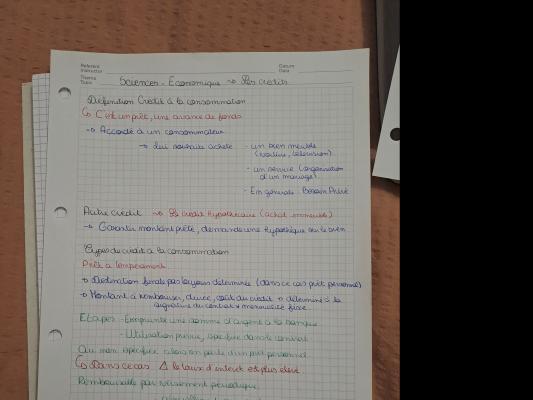 Referent
Instructor
Datum
Date
Thema
Topic
Sciences - Economique → Les crédits
Définition Crédit à la consommation
↳ C'est un prêt, une avance de fonds
→ Accordé à un consommateur
→ Qui souhaite acheté
- un bien meuble
(voiture, télévision)
- un service (organisation
d'un mariage)
- En générale: Besoin Privé
Autre crédit → Le crédit Hypothécaire (achat immeuble)
→ Garantir montant prêté, demande une hypothèque sur le bien
Types de crédit à la consommation
Prêt à tempérament
→ Destination finale pas toujours déterminée (dans ce cas prêt personnel)
→ Montant à rembourser, durée, coût du crédit → déterminé à la
signature du contrat + mensualité fixe
Etapes - Emprunte une somme d'argent à la banque
- Utilisation prévue, spécifiée dans le contrat
Ou non spécifiée, alors on parle d'un prêt personnel
↳ Dans ce cas Δ le taux d'intérêt est plus élevé
Remboursable par versement périodique